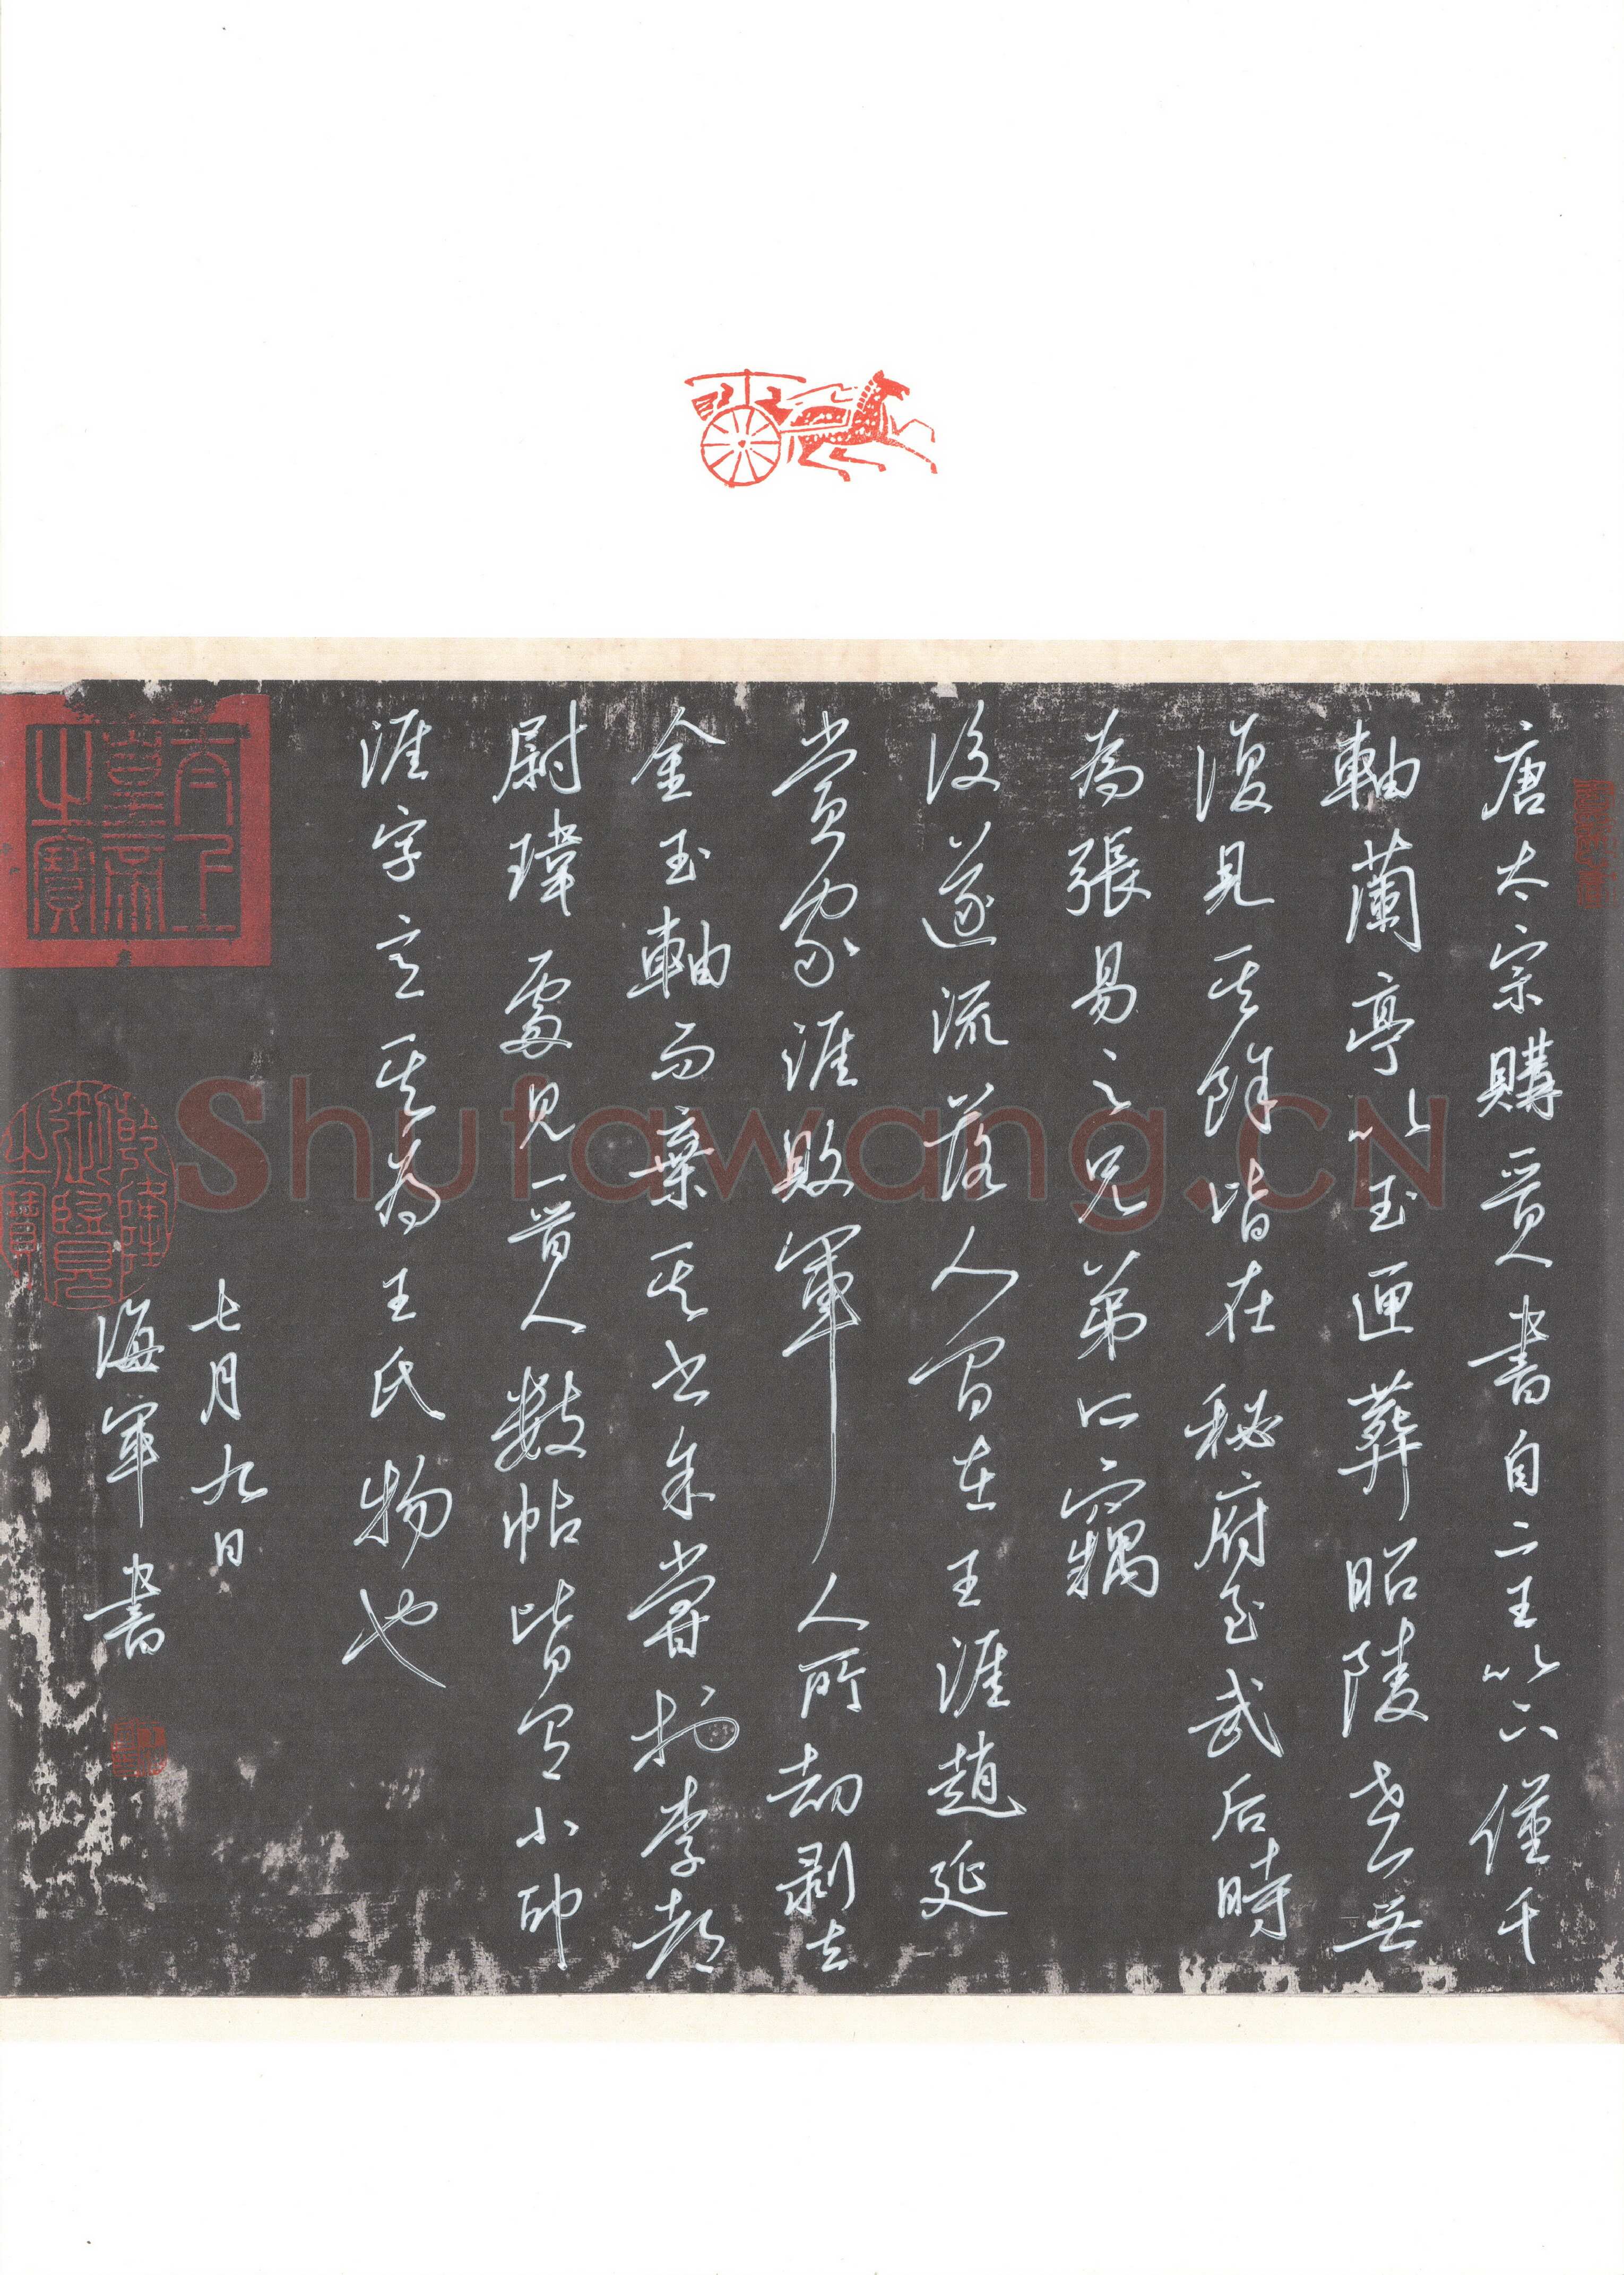 唐太宗購晉人書自二王以下僅千
軸蘭亭以玉匣葬昭陵世無
復見其餘皆在秘府至武后時
為張易之兄弟所竊
後遂流落人間在王涯趙延
賞家涯敗軍人所劫剥去
金玉軸而棄其書余嘗於李都
尉瑋處見晉人數帖皆有小印
涯字意其為王氏物也
七月九日
海軍書
太上皇帝之寶
乾隆御覽之寶
Shufawang.CN